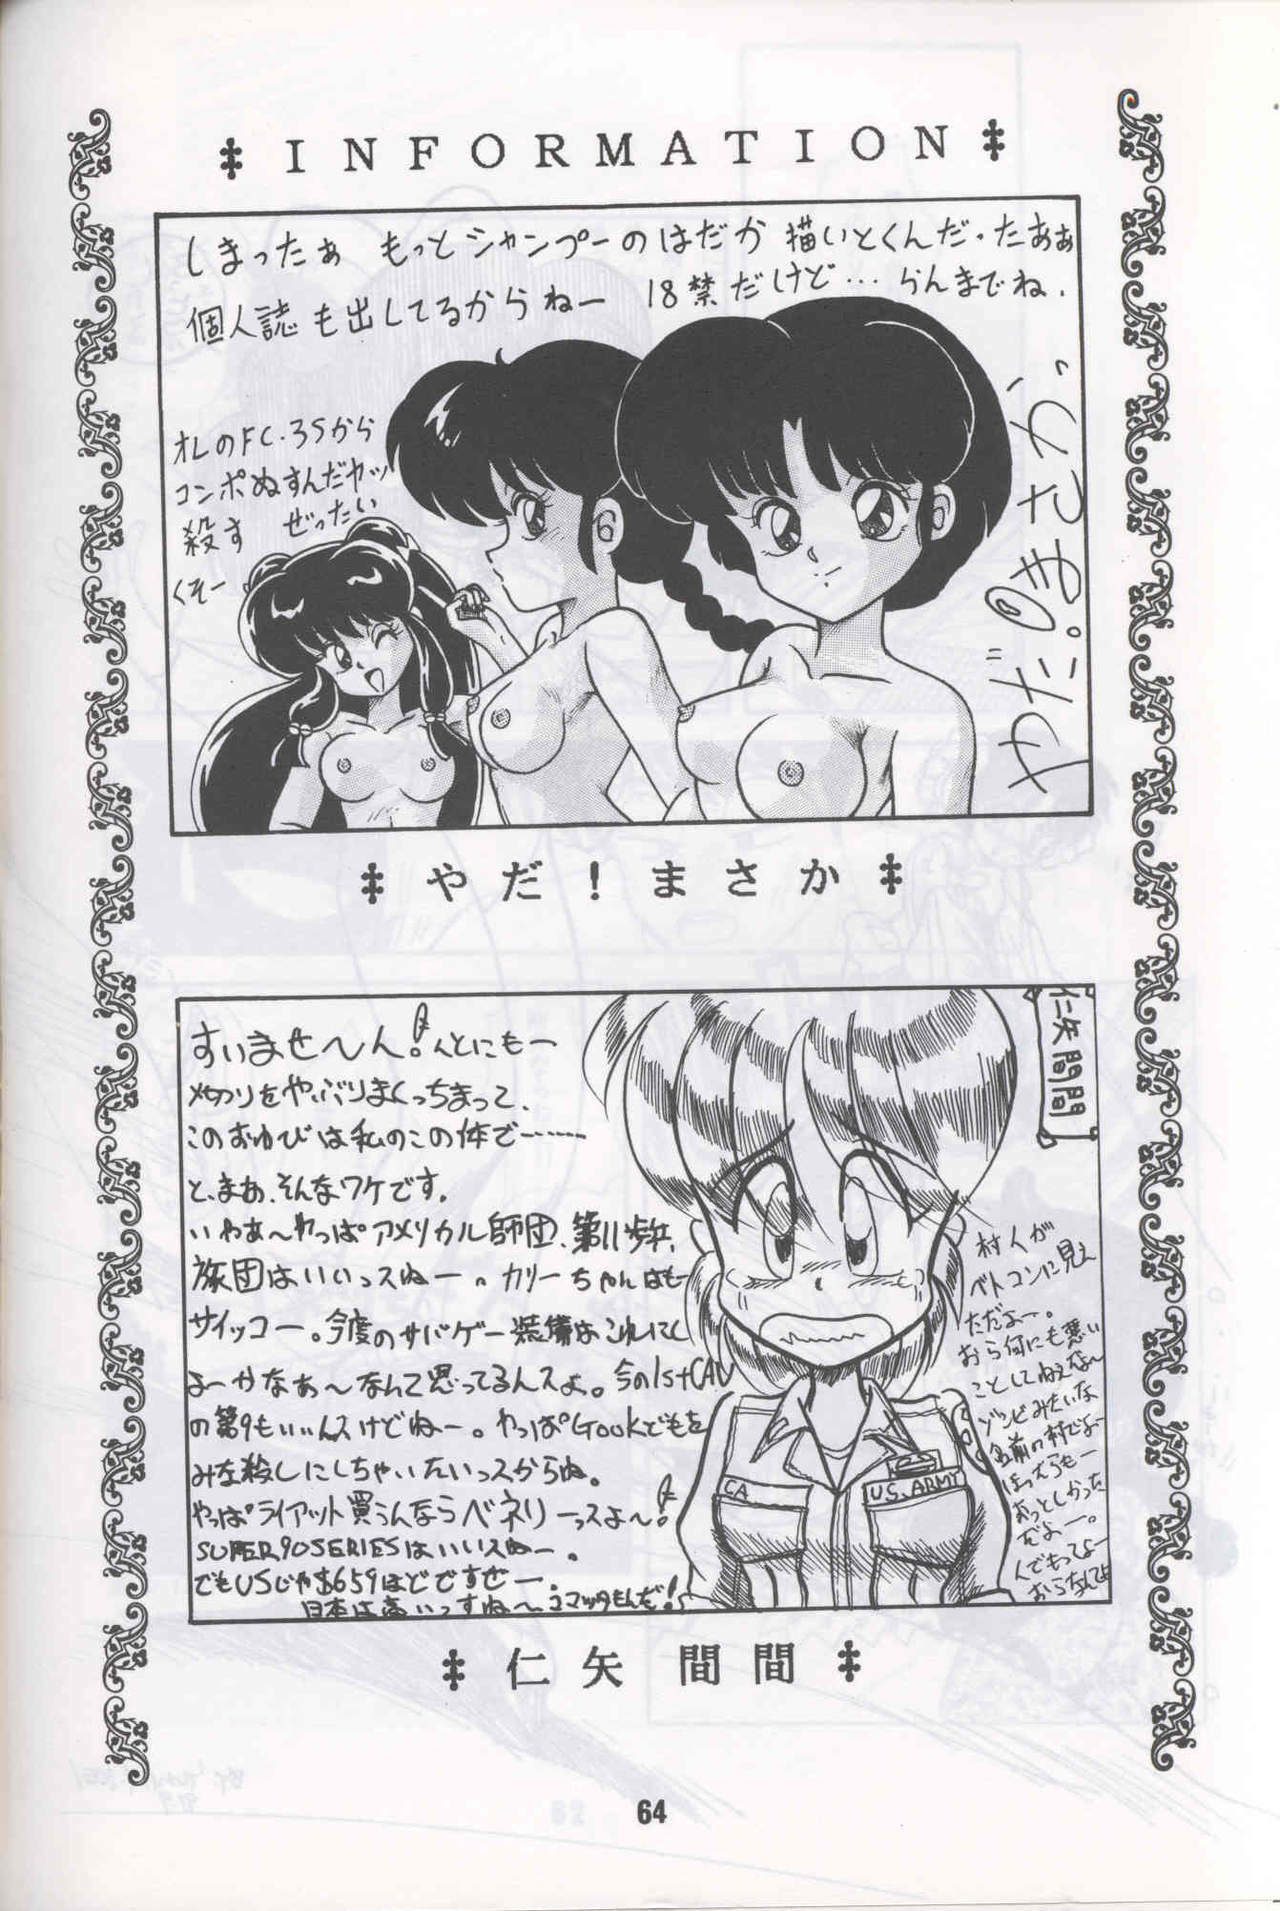 INFORMATION
しまったぁ もっとシャンプーのはだか 描いとくんだ・たああ
個人誌も出してるからねー 18禁だけど…らんまでね.
オレのFC.3Sから
コンポぬすんだヤツ
殺す ぜったい
くそー
やだ!まさか
すいませ〜ん!んとにもー
〆切りをやぶりまくっちまって、
このおわびは私のこの体で……
と、まあ、そんなワケです。
いやぁ〜やっぱアメリカル師団、第11歩兵
旅団はいいっスねー。カリーちゃんはもー
サイッコー。今度のサバゲー装備はこれにし
よーかなぁ〜なんて思ってるんスよ。今の1stCAV
の第9もいいんスけどねー。やっぱGookどもを
みな殺しにしちゃいたいっスからね。
やっぱライアット買うんならベネリーっスよ〜!
SUPER90SERIESはいいスねー。
でもUSじゃ$659ほどですぜー.
日本は高いっすね〜.コマッタもんだ!
仁矢間間
CA
U.S.ARMY
村人が
ベトコンに見え
ただよー。
おら何にも悪い
ことしてねえな〜
ゾンビみたいな
名前の村でよー
あっとしかった
だよー。
んでもってよー
仁矢 間間
64